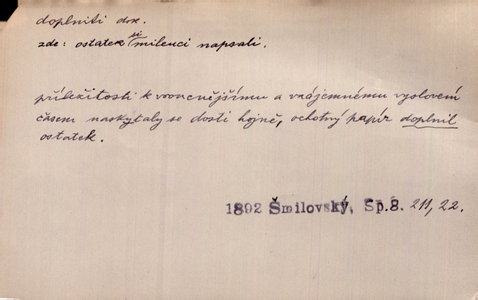 doplniti dok.
zde: ostatek si milenci napsali.
příležitosti k vroucnějšímu a vzájemnému vyslovení
časem naskytaly se dosti hojně, ochotný papír doplnil
ostatek.
1892 Šmilovský, Sp.8. 211, 22.